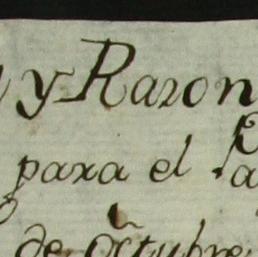 y Razon
para el
de Octubre